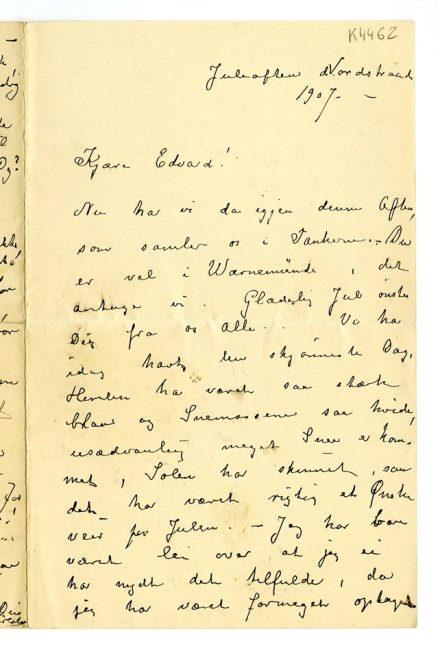 K4462
Juleaften Nordstrand
1907. –
Kjære Edvard!
Nu har vi da igjen denne Aften,
som samler os i Tankerne. – Du
er vel i Warnemünde, det
antage vi. Glædelig Jul ønskes
Dig fra os alle. . Vi ha
idag havt den skjønneste Dag,
Himlen har været saa stærk
blaa og Snemassene saa hvide,
usædvanlig meget Snee er kom-
met, Solen har skinnet, saa
det har været rigtig et Ønske
veir for Julen. – Jeg har bare
været lei over at jeg ei
har nydt det tilfulde, da
jeg har været formeget optaget